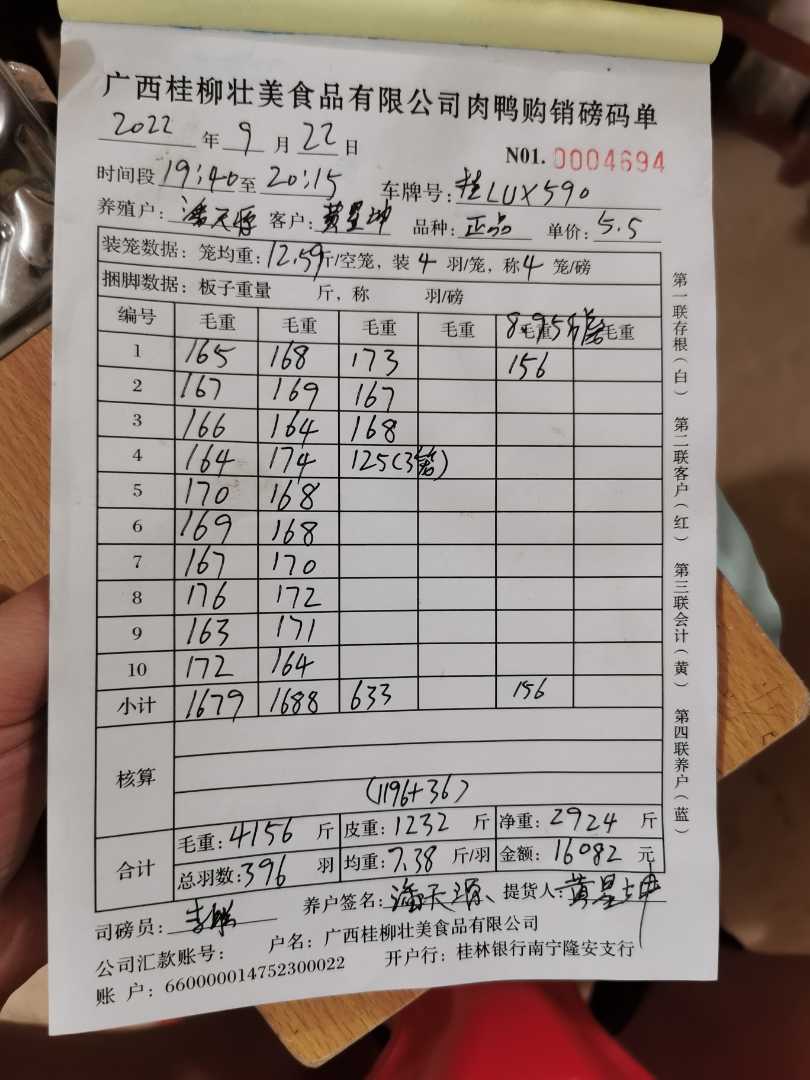 广西桂柳壮美食品有限公司肉鸭购销磅码单
2022 年 9 月 22 日
N01. 0004694
时间段 19:40 至 20:15 车牌号: 桂LUX590
养殖户: 潘天源 客户: 黄星坤 品种: 正品 单价: 5.5
装笼数据: 笼均重: 12.59 斤/空笼, 装 4 羽/笼, 称 4 笼/磅
捆脚数据: 板子重量 斤, 称 羽/磅
编号 毛重 毛重 毛重 毛重 毛重 毛重
8.95
1 165 168 173 156
2 167 169 167
3 166 164 168
4 164 174 125(3笼)
5 170 168
6 169 168
7 167 170
8 176 172
9 163 171
10 172 164
小计 1679 1688 633 156
核算
(1196+36)
合计
毛重: 4156 斤 皮重: 1232 斤 净重: 2924 斤
总羽数: 396 羽 均重: 7.38 斤/羽 金额: 16082 元
司磅员: 养户签名: 潘天源 提货人: 黄星坤
公司汇款账号: 户名: 广西桂柳壮美食品有限公司
账 户: 660000014752300022 开户行: 桂林银行南宁隆安支行
第一联存根(白) 第二联客户(红) 第三联会计(黄) 第四联养户(蓝)